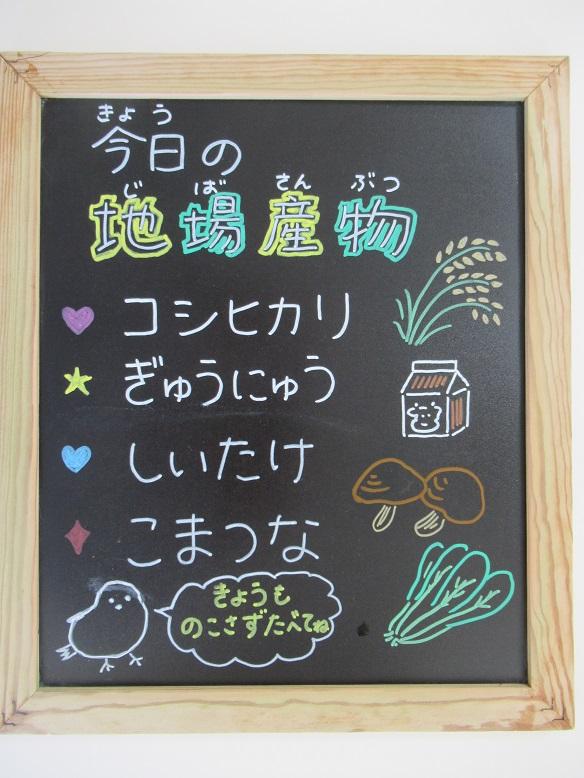 きょう
今日の
じ ば さん ぶつ
地場産物
コシヒカリ
ぎゅうにゅう
しいたけ
こまつな
きょうも
のこさずたべてね